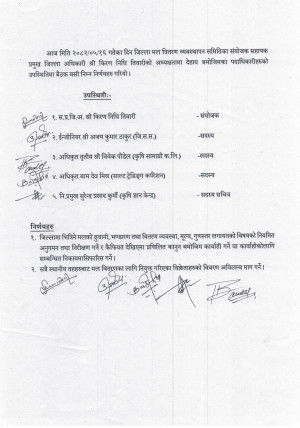 आज मिति २०८२/०५/१६ गतेका दिन जिल्ला मल वितरण व्यवस्थापन समितिका संयोजक सहायक
प्रमुख जिल्ला अधिकारी श्री किरण निधि तिवारीको अध्यक्षतामा देहाय बमोजिमका पदाधिकारीहरुको
उपस्थितिमा बैठक बसी निम्न निर्णयहरु गरियो।
उपस्थितीः-
१. स.प्र.जि.अ. श्री किरण निधि तिवारी - संयोजक
२. ईन्जीनियर श्री अजय कुमार ठाकुर (जि.स.स.) -सदस्य
३. अधिकृत तृतीय श्री विवेक पौडेल (कृषि सामाग्री क.लि.) -सदस्य
४. अधिकृत श्री राम देव मिश्र (साल्ट ट्रेडिङ्ग कर्पोरेशन) -सदस्य
५. नि.प्रमुख सुरेन्द्र प्रसाद कुर्मी (कृषि ज्ञान केन्द्र) -सदस्य सचिव
निर्णयहरुः
१. जिल्लामा भित्रिने मलको ढुवानी, भण्डारण तथा वितरण व्यवस्था, मूल्य, गुणस्तर लगायतको विषयको नियमित
अनुगमन तथा निरीक्षण गर्ने र कैफियत देखिएमा प्रचलित कानुन बमोजिम कार्वाही गर्ने वा कार्वाहीकोलागि
सम्बन्धित निकायमासिफारिस गर्ने।
२. सबै स्थानीय तहहरुबाट मल वितरणका लागि नियुक्त गरिएका विक्रेताहरुको विवरण अविलम्ब माग गर्ने।